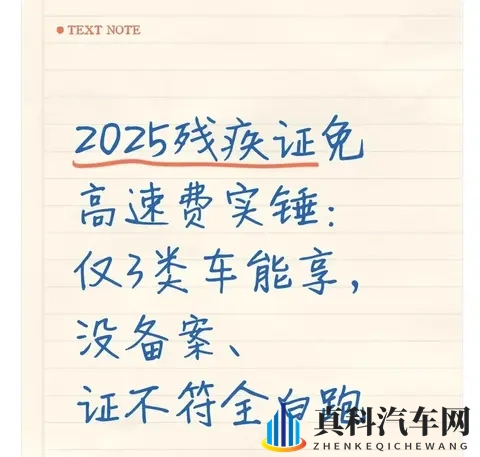 TEXT NOTE
2025残疾证免
高速费实锤：
仅3类车能享，
没备案、
证不符全白跑
真科汽车网
ZHENKEQICHEWANG